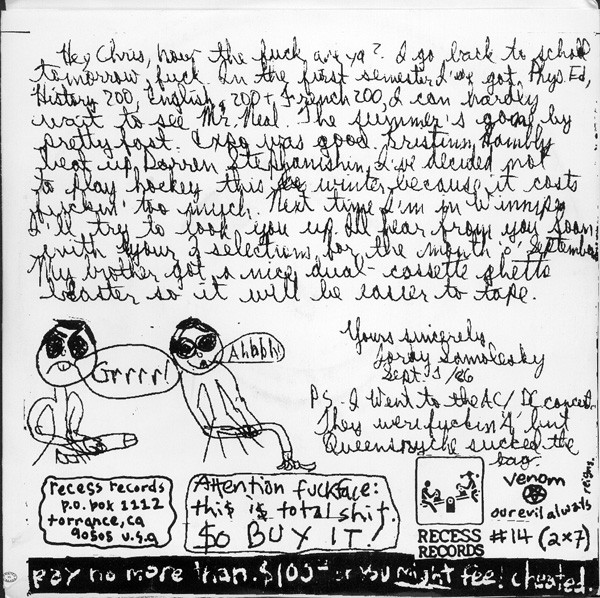 Hey Chris, how the fuck are ya? I go back to school
tomorrow fuck. In the first semester I've got Phys. Ed,
History 200, English 200 + French 200, I can hardly
wait to see Mr. Neal. The summer's gone by
pretty fast. Expo was good. Kristinn Hambly
beat up Darren Stephanishin. I've decided not
to play hockey this winter because it costs
fuckin' too much. Next time I'm in Winnipeg
I'll try to look you up. I'll hear from you soon
with your selections for the month o' September
My brother got a nice dual-cassette ghetto
blaster so it will be easier to tape.
Yours sincerely,
Jordy
Sept. 1/86
PS - I went to the AC/DC concert.
They were fuckin' A, but
Queensryche succed the
bag.
Grrrr!
Ahhhh!
recess records
p.o. box 1112
torrance, ca
90505 u.s.a
Attention fuckface:
this is total shit.
$o BUY IT!
RECESS
RECORDS
venom
our evil always
#14 (2x7)
pay no more than $100 or you might feel cheated.